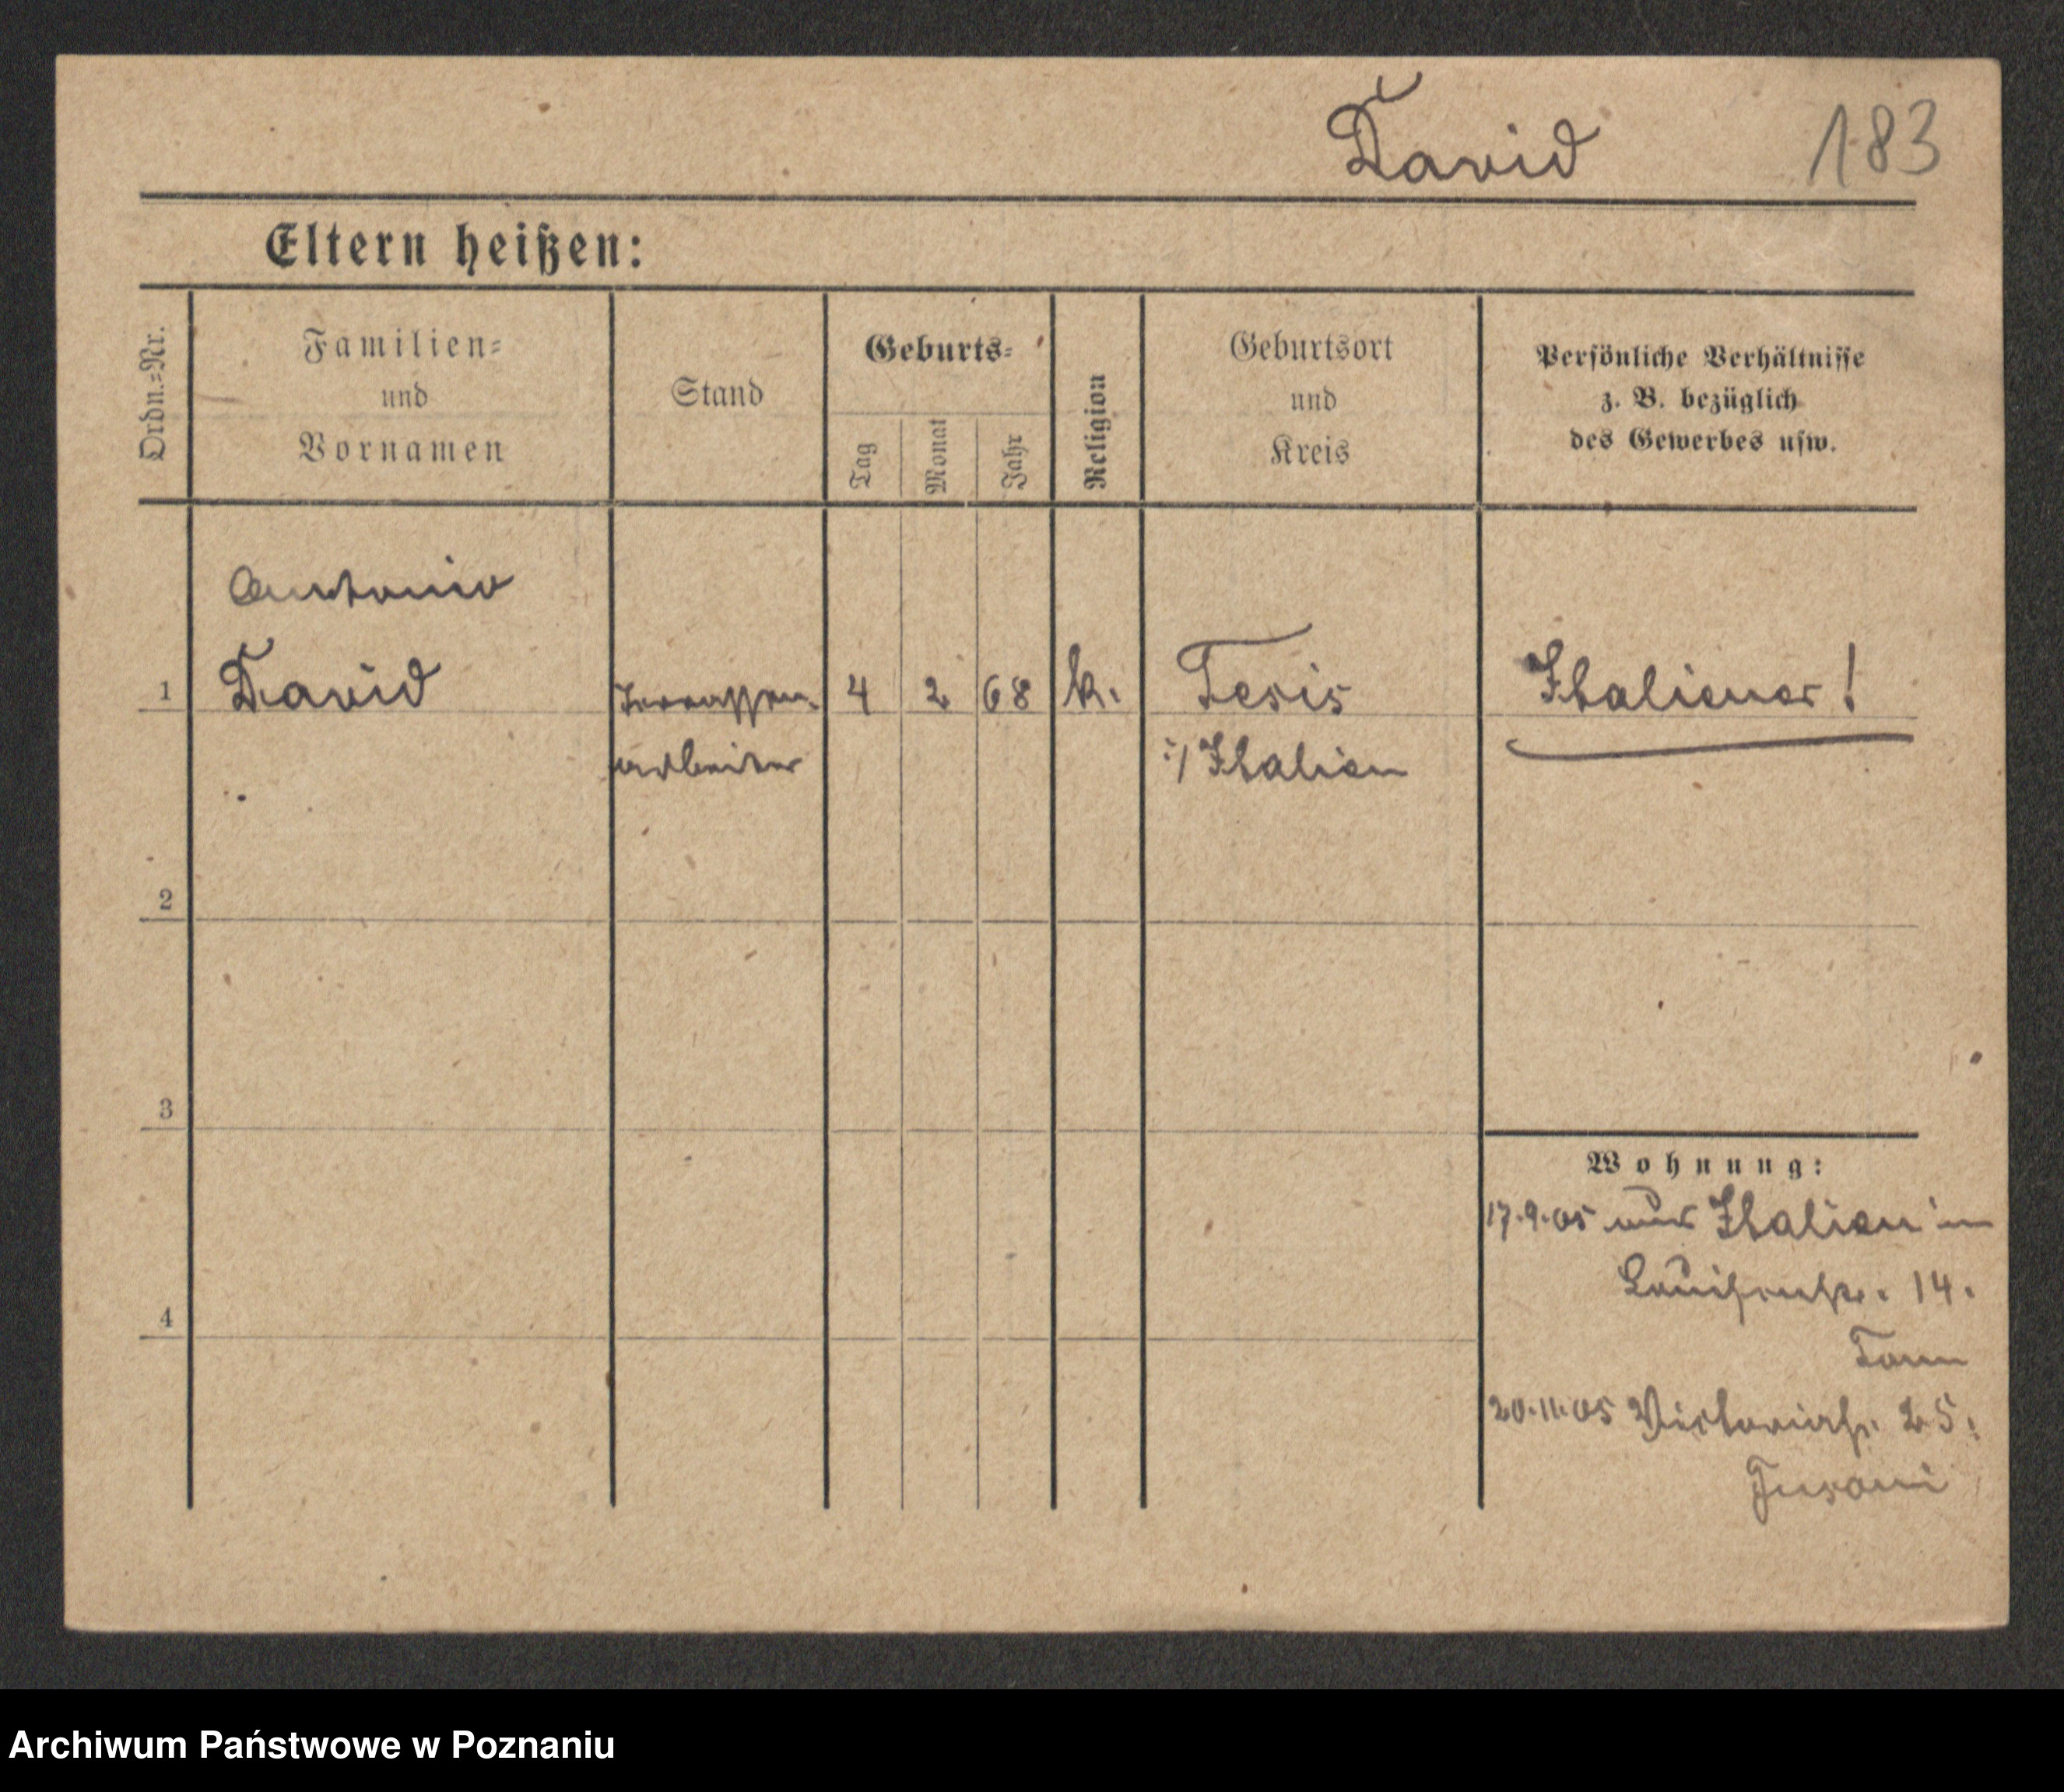 David 183
Eltern heißen:
Ordn.=Nr.
Familien=
und
Vornamen
Stand
Geburts=
Tag
Monat
Jahr
Religion
Geburtsort
und
Kreis
Persönliche Verhältnisse
z. B. bezüglich
des Gewerbes usw.
Antonio
1 David Terrassen- 4 2 68 k. Italiener!
arbeiter Italien
2
3
4
Wohnung:
17.9.05 aus Italien in
Louisenstr. 14.
20.11.05 Victoriastr. 25.
Archiwum Państwowe w Poznaniu